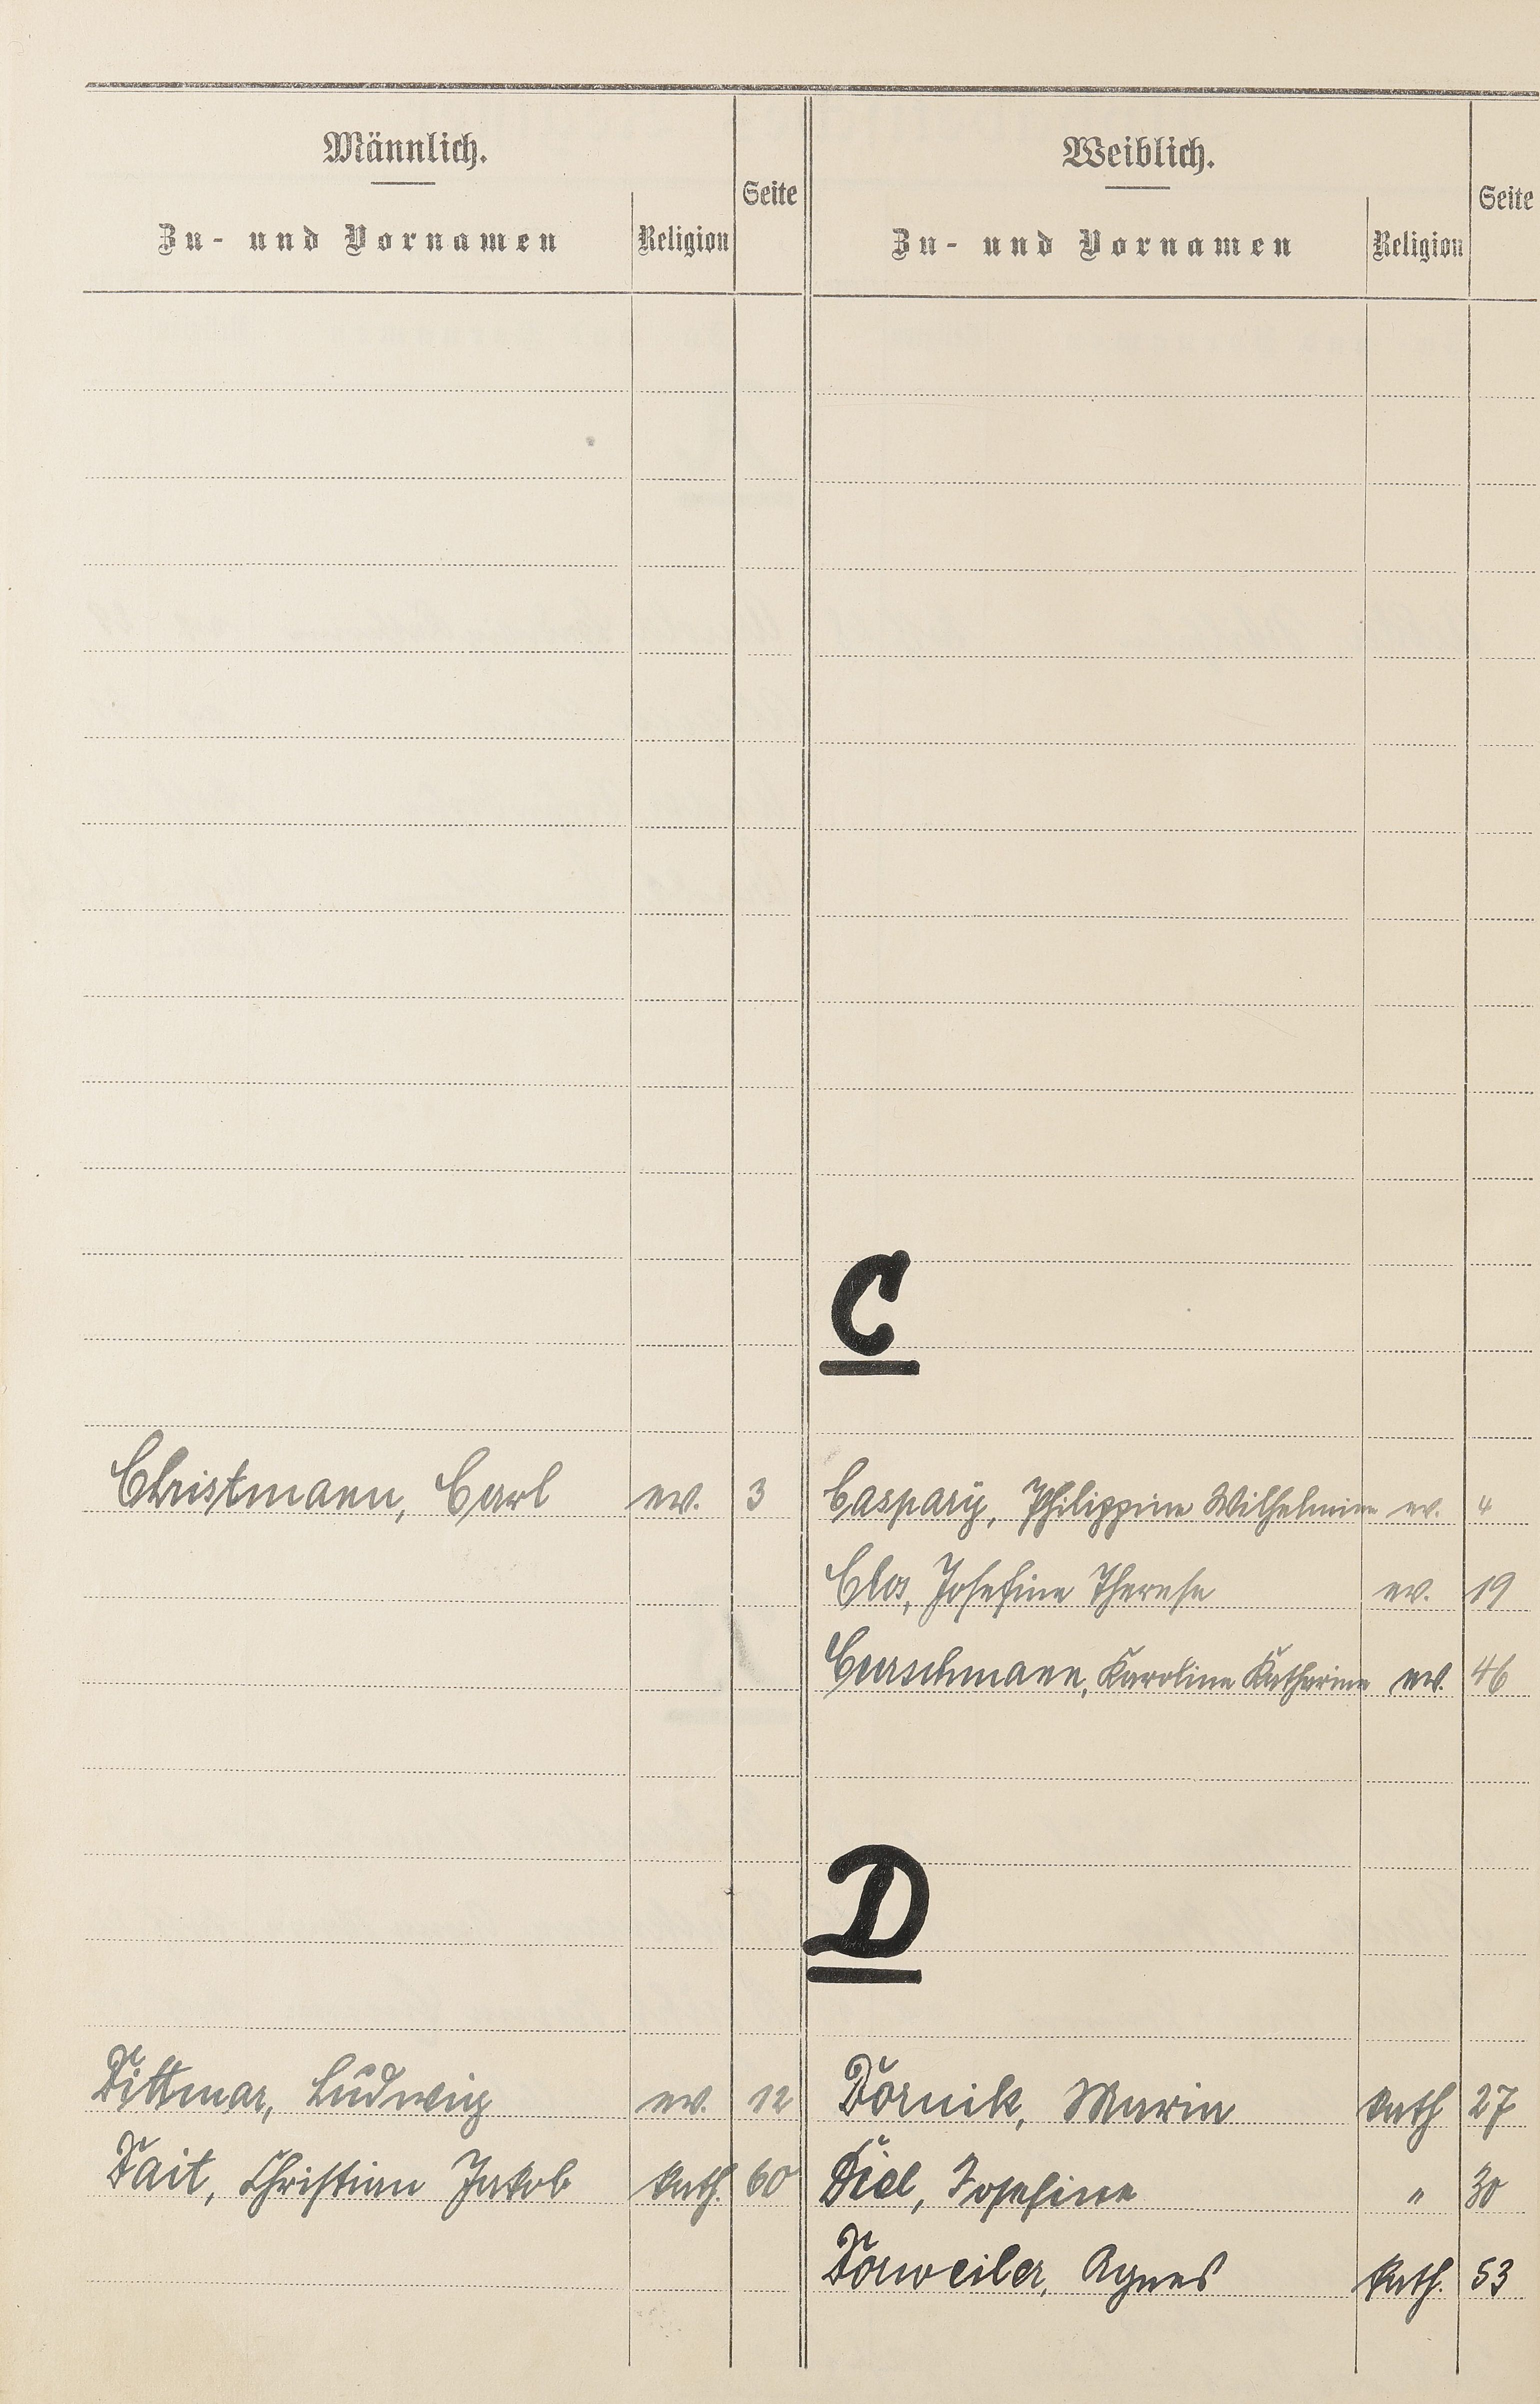 Männlich.
Zu- und Vornamen Religion Seite
Weiblich.
Zu- und Vornamen Religion Seite
C
Christmann, Carl ev. 3
Caspary, Philippine Wilhelmine ev. 4
Clos, Josefine Therese ev. 19
Curschmann, Karoline Katharine ev. 46
D
Dittmar, Ludwig ev. 12
Dornik, Maria kath 27
Dait, Christian Jakob kath. 60
Diel, Josefine " 30
Dorweiler, Agnes kath. 53